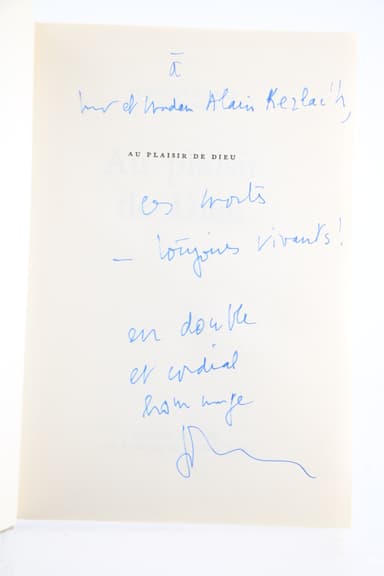 à
Mr et Madame Alain Kezlac'h,
AU PLAISIR DE DIEU
ces morts
– toujours vivants !
en double
et cordial
hommage